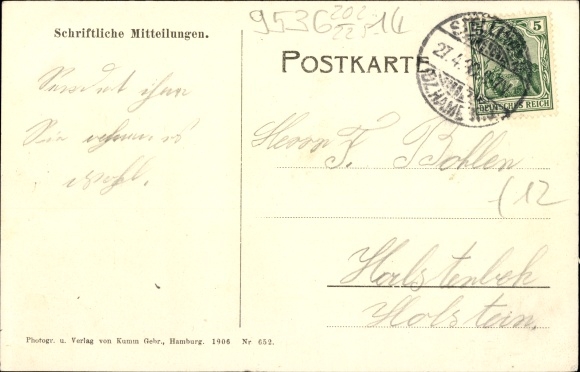 9536 202 14
225
Schriftliche Mitteilungen.
POSTKARTE
27.4.
5
DEUTSCHES REICH
Sie nehmen es
wohl.
Herrn F. Bohlen
(12
Halstenbek
Holstein.
Photogr. u. Verlag von Kumm Gebr., Hamburg. 1906 Nr 652.